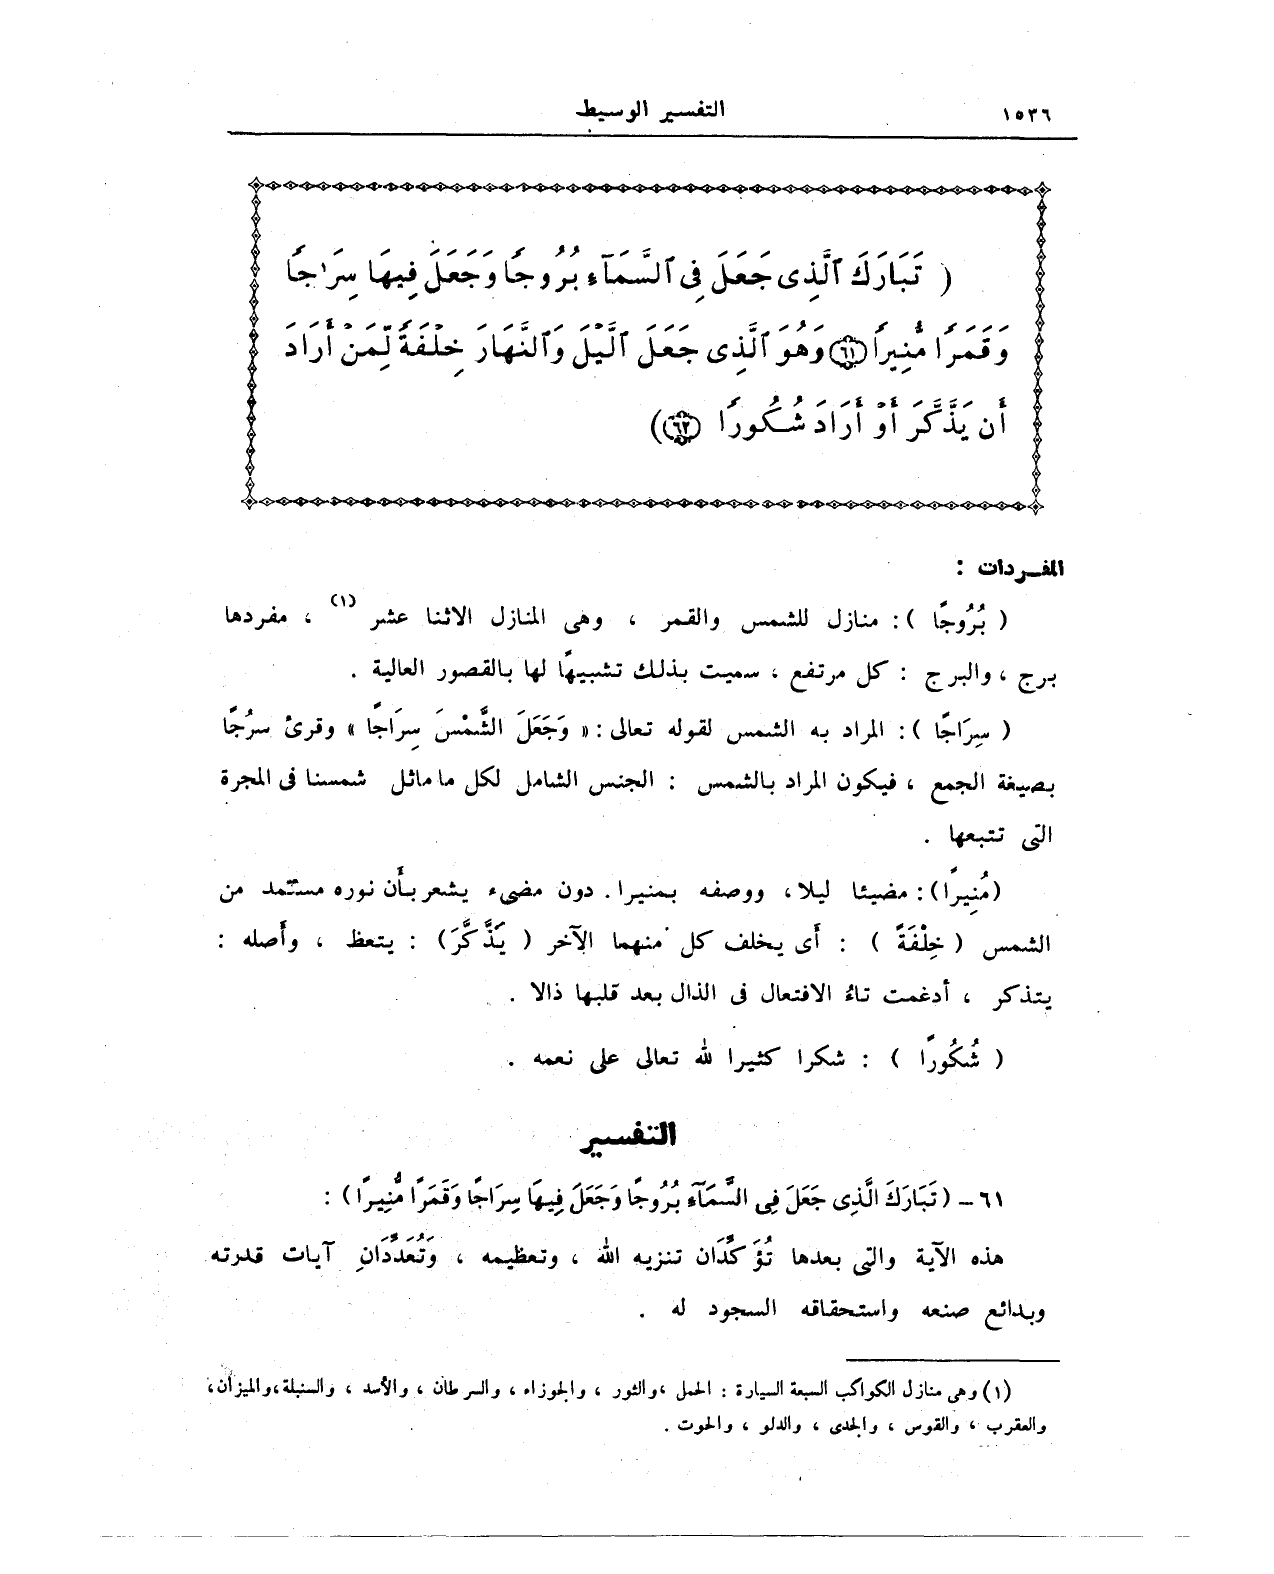 ١٥٣٦ التفسير الوسيط
( تَبَارَكَ ٱلَّذِى جَعَلَ فِى ٱلسَّمَآءِ بُرُوجًا وَجَعَلَ فِيهَا سِرَٰجًا
وَقَمَرًا مُّنِيرًا ﴿٦١﴾ وَهُوَ ٱلَّذِى جَعَلَ ٱلَّيْلَ وَٱلنَّهَارَ خِلْفَةً لِّمَنْ أَرَادَ
أَن يَذَّكَّرَ أَوْ أَرَادَ شُكُورًا ﴿٦٢﴾)
المفــردات :
( بُرُوجًا ) : منازل للشمس والقمر ، وهى المنازل الاثنا عشر (١) ، مفردها
برج ، والبرج : كل مرتفع ، سميت بذلك تشبيهًا لها بالقصور العالية .
( سِرَاجًا ) : المراد به الشمس لقوله تعالى : « وَجَعَلَ الشَّمْسَ سِرَاجًا » وقرئ سرُجًا
بصيغة الجمع ، فيكون المراد بالشمس : الجنس الشامل لكل ما ماثل شمسنا فى المجرة
التى تتبعها .
(مُنِيرًا) : مضيئا ليلا ، ووصفه بمنيرا . دون مضىء يشعر بأن نوره مستمد من
الشمس ( خِلْفَةً ) : أى يخلف كل منهما الآخر ( يَذَّكَّرَ ) : يتعظ ، وأصله :
يتذكر ، أدغمت تاءُ الافتعال فى الذال بعد قلبها ذالا .
( شُكُورًا ) : شكرا كثيرا لله تعالى على نعمه .
التفسير
٦١ – ( تَبَارَكَ الَّذِى جَعَلَ فِى السَّمَآءِ بُرُوجًا وَجَعَلَ فِيهَا سِرَاجًا وَقَمَرًا مُّنِيرًا ) :
هذه الآية والتى بعدها تُؤَكِّدَان تنزيه الله ، وتعظيمه ، وَتُعَدِّدَانِ آيات قدرته
وبدائع صنعه واستحقاقه السجود له .
(١) وهى منازل الكواكب السبعة السيارة : الحمل ، والثور ، والجوزاء ، والسرطان ، والأسد ، والسنبلة ، والميزان ،
والعقرب ، والقوس ، والجدى ، والدلو ، والحوت .